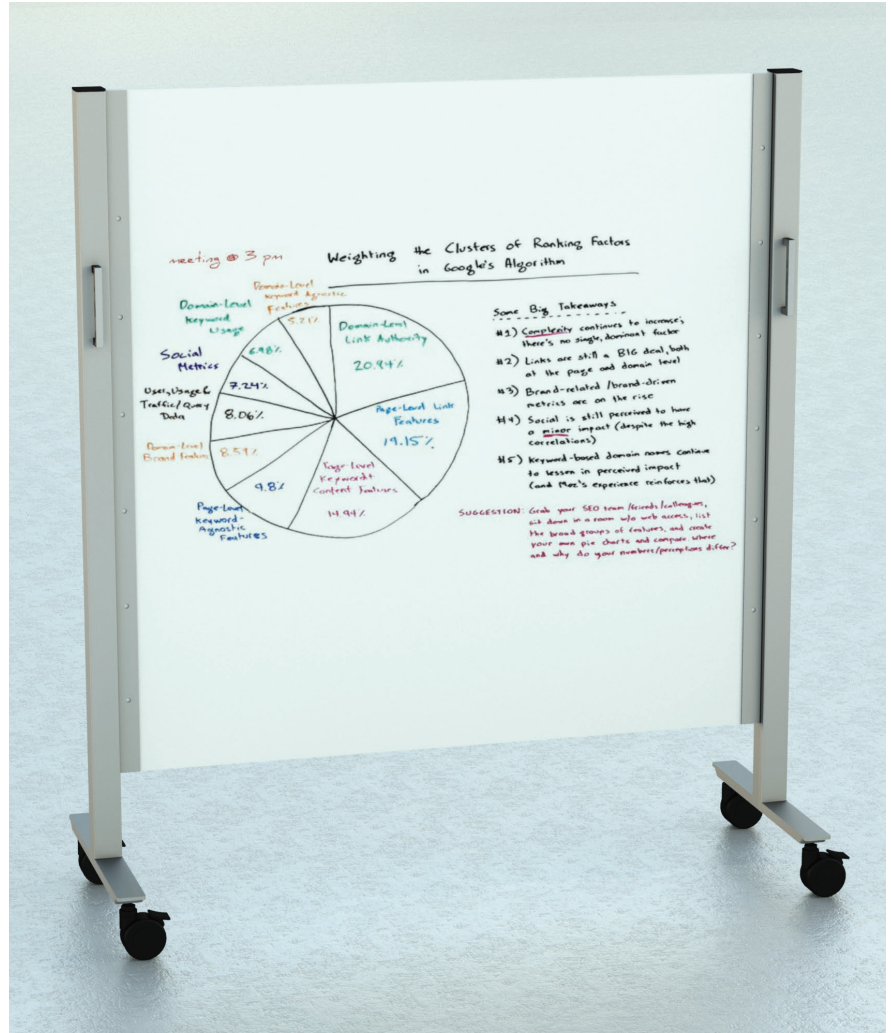 meeting @ 3 pm
Weighting the Clusters of Ranking Factors
in Google's Algorithm
Domain-Level
Keyword Agnostic
Features
5.21%
Domain-Level
Keyword
Usage
6.98%
Social
Metrics
7.24%
User, Usage &
Traffic/Query
Data
8.06%
Domain-Level
Brand Features
8.59%
Page-Level
Keyword-
Agnostic
Features
9.8%
Page-Level
Keyword+
Content Features
14.94%
Page-Level Link
Features
19.15%
Domain-Level
Link Authority
20.94%
Some Big Takeaways
#1) Complexity continues to increase;
there's no single, dominant factor
#2) Links are still a BIG deal, both
at the page and domain level
#3) Brand-related/brand-driven
metrics are on the rise
#4) Social is still perceived to have
a minor impact (despite the high
correlations)
#5) Keyword-based domain names continue
to lessen in perceived impact
(and Moz's experience reinforces that)
SUGGESTION: Grab your SEO team/friends/colleagues,
sit down in a room w/o web access, list
the broad groups of features, and create
your own pie charts and compare. Where
and why do your numbers/perceptions differ?